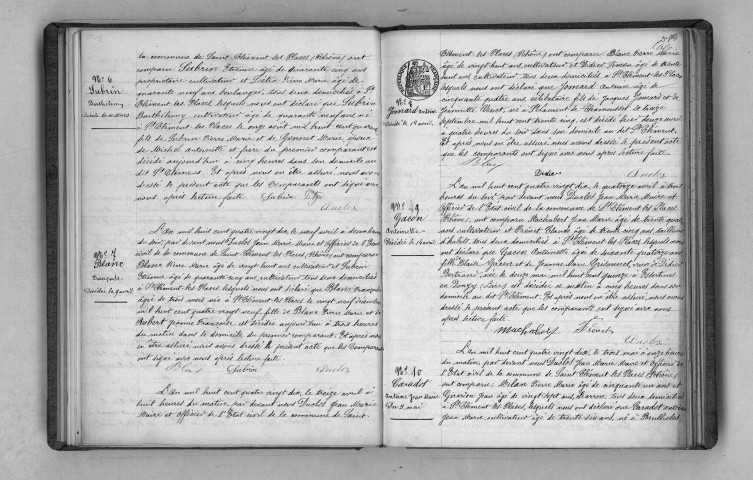 la commune de Saint Clément les Places (Rhône) ont
comparu Subrin Etienne âgé de quarante cinq ans
propriétaire cultivateur et Pierre Marie âgé de
quarante neuf ans boulanger, tous deux domiciliés à St
Clément les Places, lesquels nous ont déclaré que Subrin
Barthélemy, cultivateur âgé de quarante neuf ans né
à St Clément les Places le onze août mil huit cent quarante
fils de Subrin Pierre Marie et de Marie, époux
de Michel antoinette et frère du premier comparant est
décédé aujourd'hui à cinq heures dans son domicile au
dit St Clément. Et après nous en être assuré, nous avons
dressé le présent acte que les Comparants ont signé avec
nous après lecture faite. Subrin
Duclos
No 6
Subrin
Barthélemy
L'an mil huit cent quatre vingt dix, le neuf avril à
du soir, par devant nous Duclos Jean Marie Maire et Officier de l'Etat
civil de la commune de Saint Clément les Places (Rhône) ont comparu
Blanc Pierre Marie âgé de vingt huit ans cultivateur et Subrin
Etienne âgé de quarante cinq ans, cultivateur tous deux domiciliés
à St Clément les Places, lesquels nous ont déclaré que Blanc Françoise
âgée de trois mois née à St Clément les Places le vingt neuf décembre
mil huit cent quatre vingt neuf, fille de Blanc Pierre Marie et de
Jeanne Françoise est décédée aujourd'hui à trois heures
du matin dans le domicile du premier comparant. Et après nous
en être assuré nous avons dressé le présent acte que les Comparants
ont signé avec nous après lecture faite.
Blanc Subrin Duclos
No 7
Blanc
Françoise
Décédée le 9 avril
L'an mil huit cent quatre vingt dix, le treize avril à
huit heures du matin, par devant nous Duclos Jean Marie
Maire et officier de l'Etat civil de la commune de Saint
Clément les Places (Rhône) ont comparu Blanc Pierre Marie
âgé de vingt huit ans cultivateur et Didier âgé de trente
huit ans, cultivateur tous deux domiciliés à St Clément les Places
lesquels nous ont déclaré que Jomard Antoine âgé de
cinquante quatre ans célibataire fils de Jacques Jomard et de
né à
septembre mil huit cent trente cinq, est décédé hier douze avril
à quatre heures du soir dans son domicile au dit St Clément.
Et après nous en être assuré, nous avons dressé le présent acte
que les comparants ont signé avec nous après lecture faite.
Didier
Duclos
No 8
Jomard Antoine
Décédé le 12 avril
L'an mil huit cent quatre vingt dix, le quatorze avril à
heures du soir par devant nous Duclos Jean Marie Maire et
officier de l'Etat civil de la commune de St Clément les Places
(Rhône), ont comparu Machabert Jean Marie âgé de trente quatre
ans cultivateur et Claude âgé de trente cinq ans,
d'habits, tous deux domiciliés à St Clément les Places lesquels nous
ont déclaré que Gacon Antoinette âgée de
fille Gacon et de Jeanne Marie veuve de
née le douze mai mil huit cent quinze à
en Donzy (Loire) est décédée ce matin à onze heures dans son
domicile au dit St Clément. Et après nous en être assuré, nous avons
dressé le présent acte que les comparants ont signé avec nous
après lecture faite.
Machabert
Duclos
No 9
Gacon
Antoinette
L'an mil huit cent quatre vingt dix, le trois mai à onze heures
du matin, par devant nous Duclos Jean Marie Maire et officier de
l'Etat civil de la commune de Saint Clément les Places (Rhône)
ont comparu Milan Pierre Marie âgé de cinquante un ans et
Jean âgé de vingt sept ans, tous deux domiciliés
à St Clément les Places, lesquels nous ont déclaré que Caradot antoine
Jean Marie cultivateur âgé de trente six ans, né à Brullioles
No 10
Caradot
Antoine Jean Marie